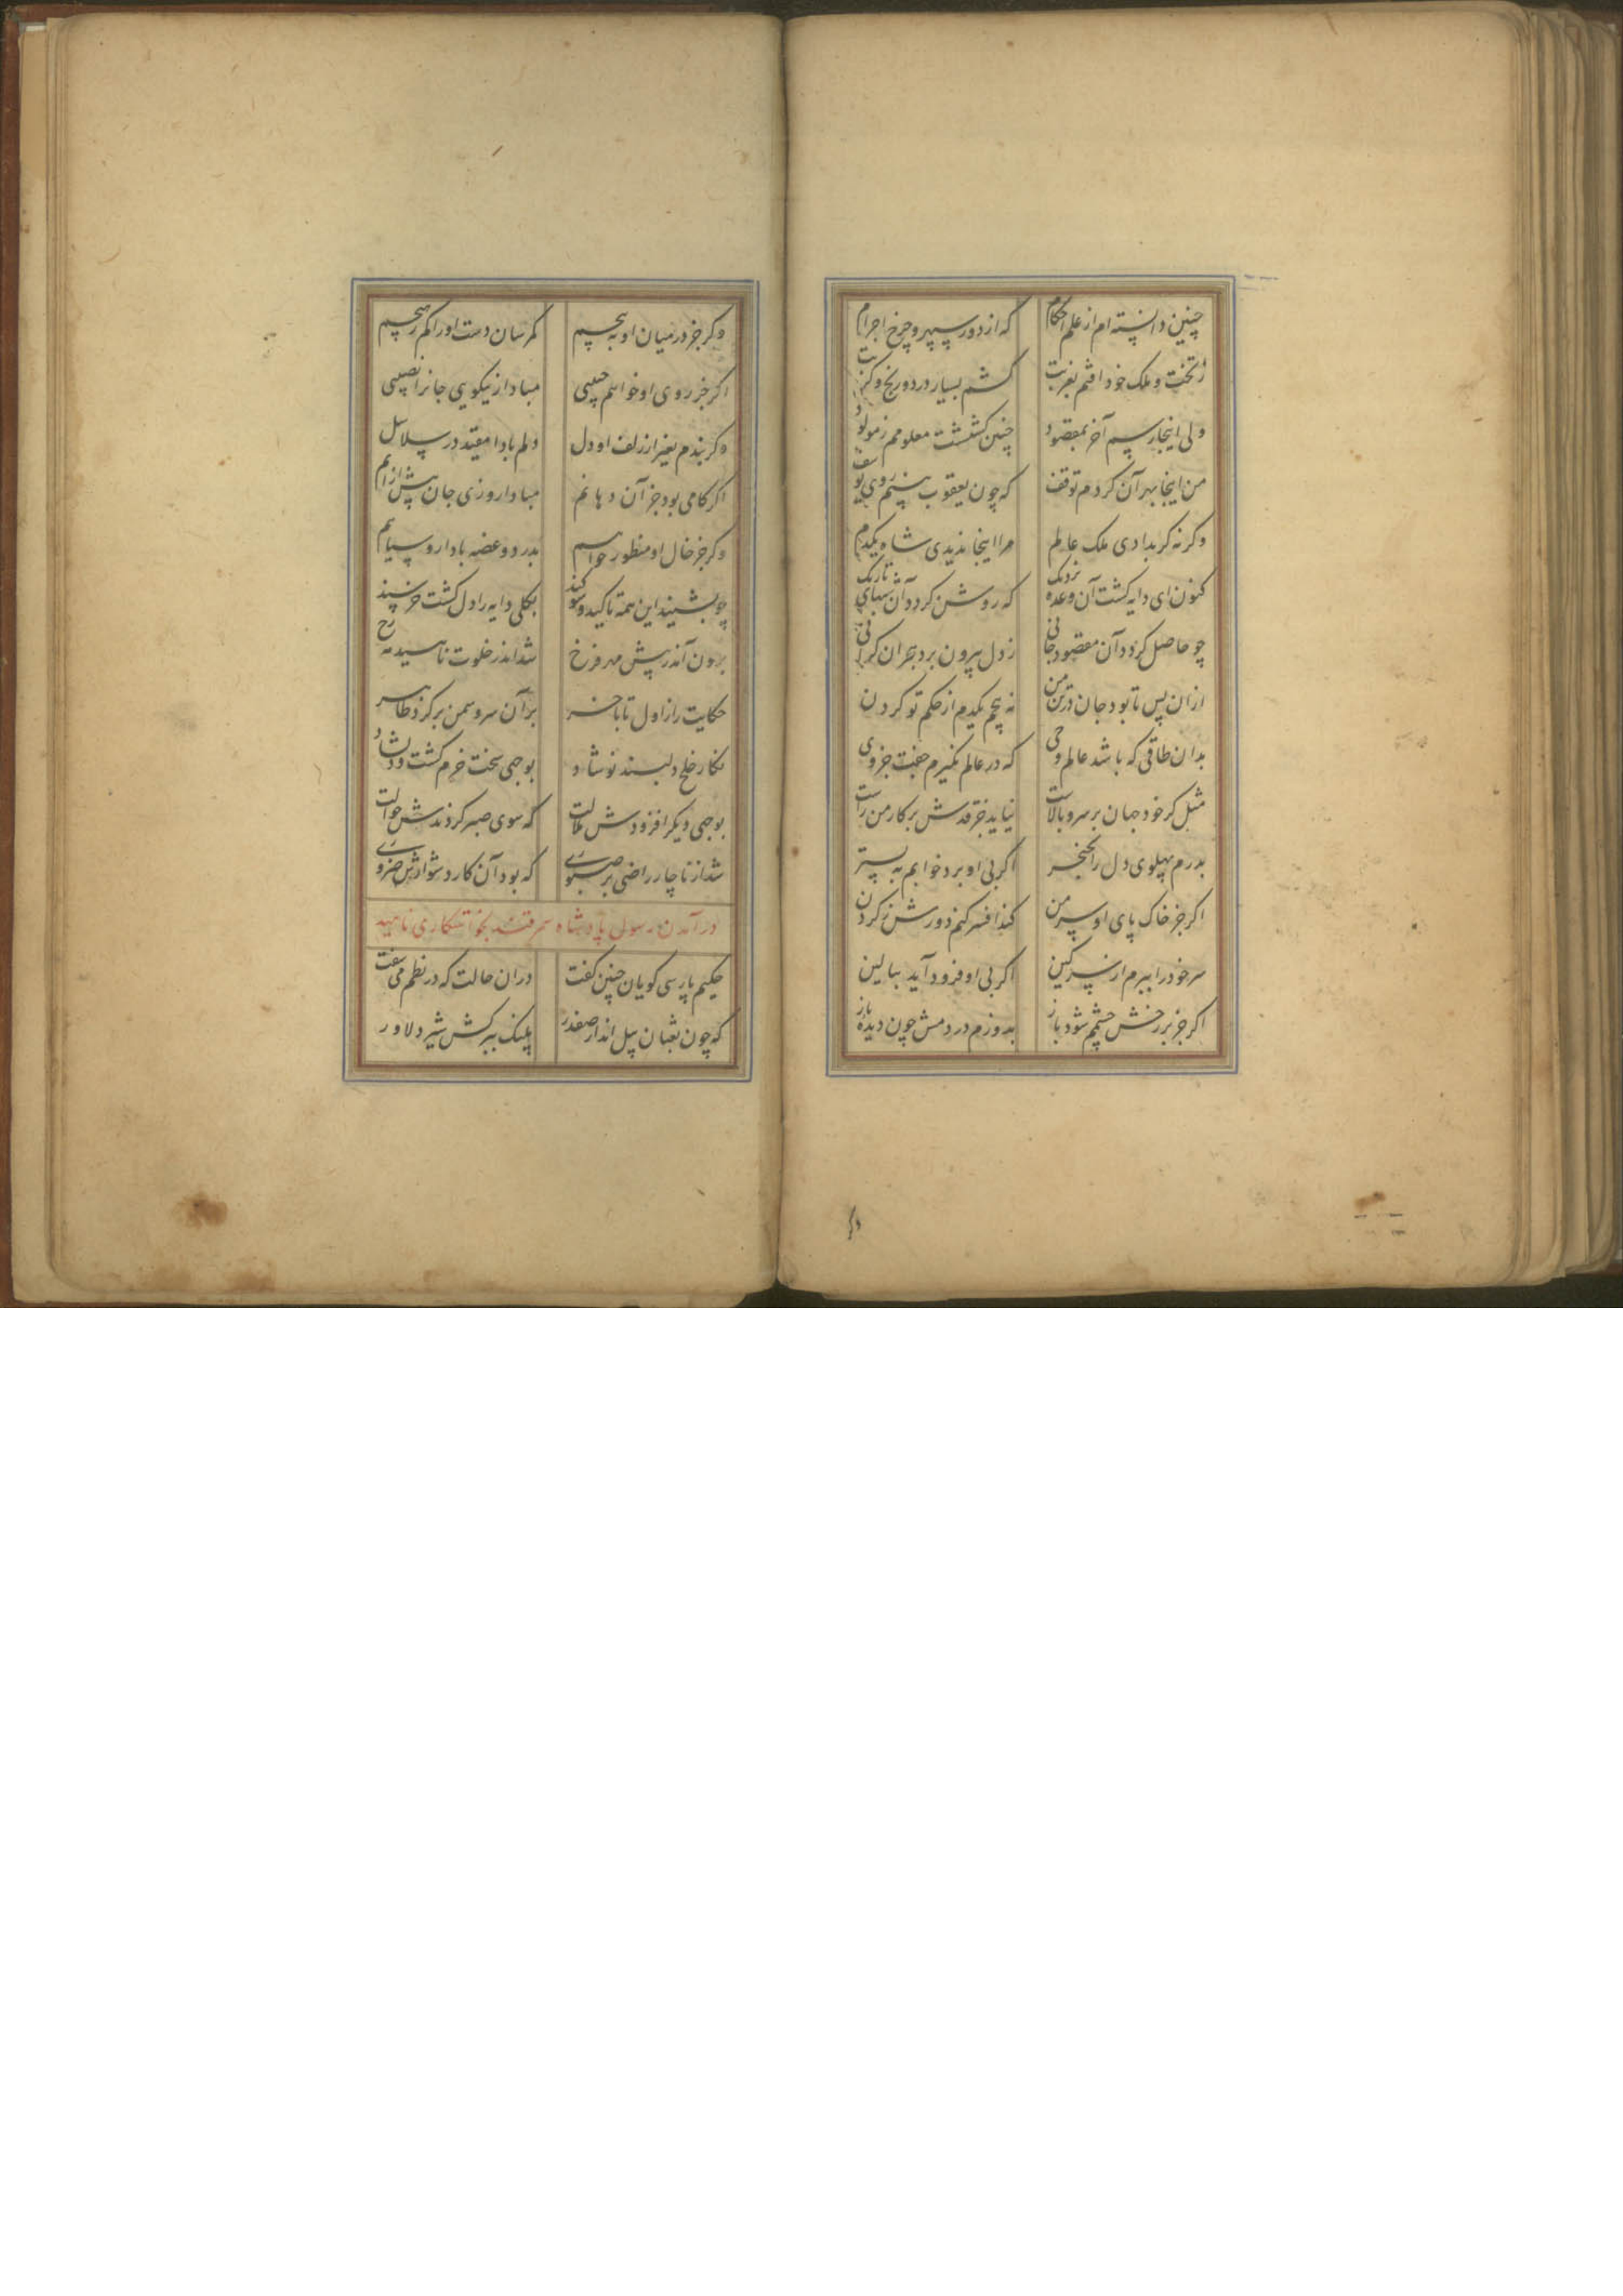 چنین دانسته‌ام از علم احکام که از دور سپهر و چرخ اجرام
ز تخت و ملک خود افتم بغربت کشم بسیار درد و رنج و کربت
ولی اینجا رسم آخر بمقصود چنین کشتست معلومم ز مولود
من اینجا بهر آن کردم توقف که چون یعقوب بینم روی یوسف
وکرنه کر بدادی ملک عالم مرا اینجا ندیدی شاه یکدم
کنون ای دایه کشت آن وعده نزدیک که روشن کردد آن شبهای تاریک
چو حاصل کردد آن مقصود جانی ز دل بیرون برد بحران کرانی
ازان پس تا بود جان در تن من نه پیچم یکدم از حکم تو کردن
بدان طاقی که باشد عالم وحی که در عالم نکیرم جفت جز وی
مثل کر خود جهان بر سرو بالاست نیاید جز قدش بر کار من راست
بدرم پهلوی دل را بخنجر اکر بی او برد خوابم به بستر
اکر جز خاک پای او سر من کند افسر کنم دورش ز کردن
سر خود را ببرم از سر کین اکر بی او فرود آید ببالین
اکر جز بر رخش چشمم شود باز بدوزم در دمش چون دیده باز
وکر جز در میان او به پیچم کمرسان دست او را کم ز هیچم
اکر جز روی او خواهم حبیبی مبادا از نیکویی جانرا نصیبی
وکر بندم بغیر از زلف او دل دلم بادا مقید در سلاسل
اکر کامی بود جز آن دهانم مبادا روزی جان پیش ازانم
وکر جز خال او منظور خواهم بدرد و غصه بادا رو سیاهم
چو بشنید این همه تاکید و سوکند بکلی دایه را دل کشت خرسند
برون آمد ز پیش مهر فرخ شد اندر خلوت ناهید مه رخ
حکایت را ز اول تا باخر بر آن سرو سمن بر کرد ظاهر
نکار خلخ دلبند نوشاد بوجهی سخت خرم کشت و دلشاد
بوجهی دیکر افزودش ملالت که سوی صبر کردندش حوالت
شد از ناچار راضی بر صبوری که بود آن کار دشوارش ضروری
درآمدن رسول پادشاه سمرقند بخواستکاری ناهید
حکیم پارسی کویان چنین کفت دران حالت که در نظم می سفت
که چون ثعبان پیل انداز صفدر پلنک ببرکش شیر دلاور